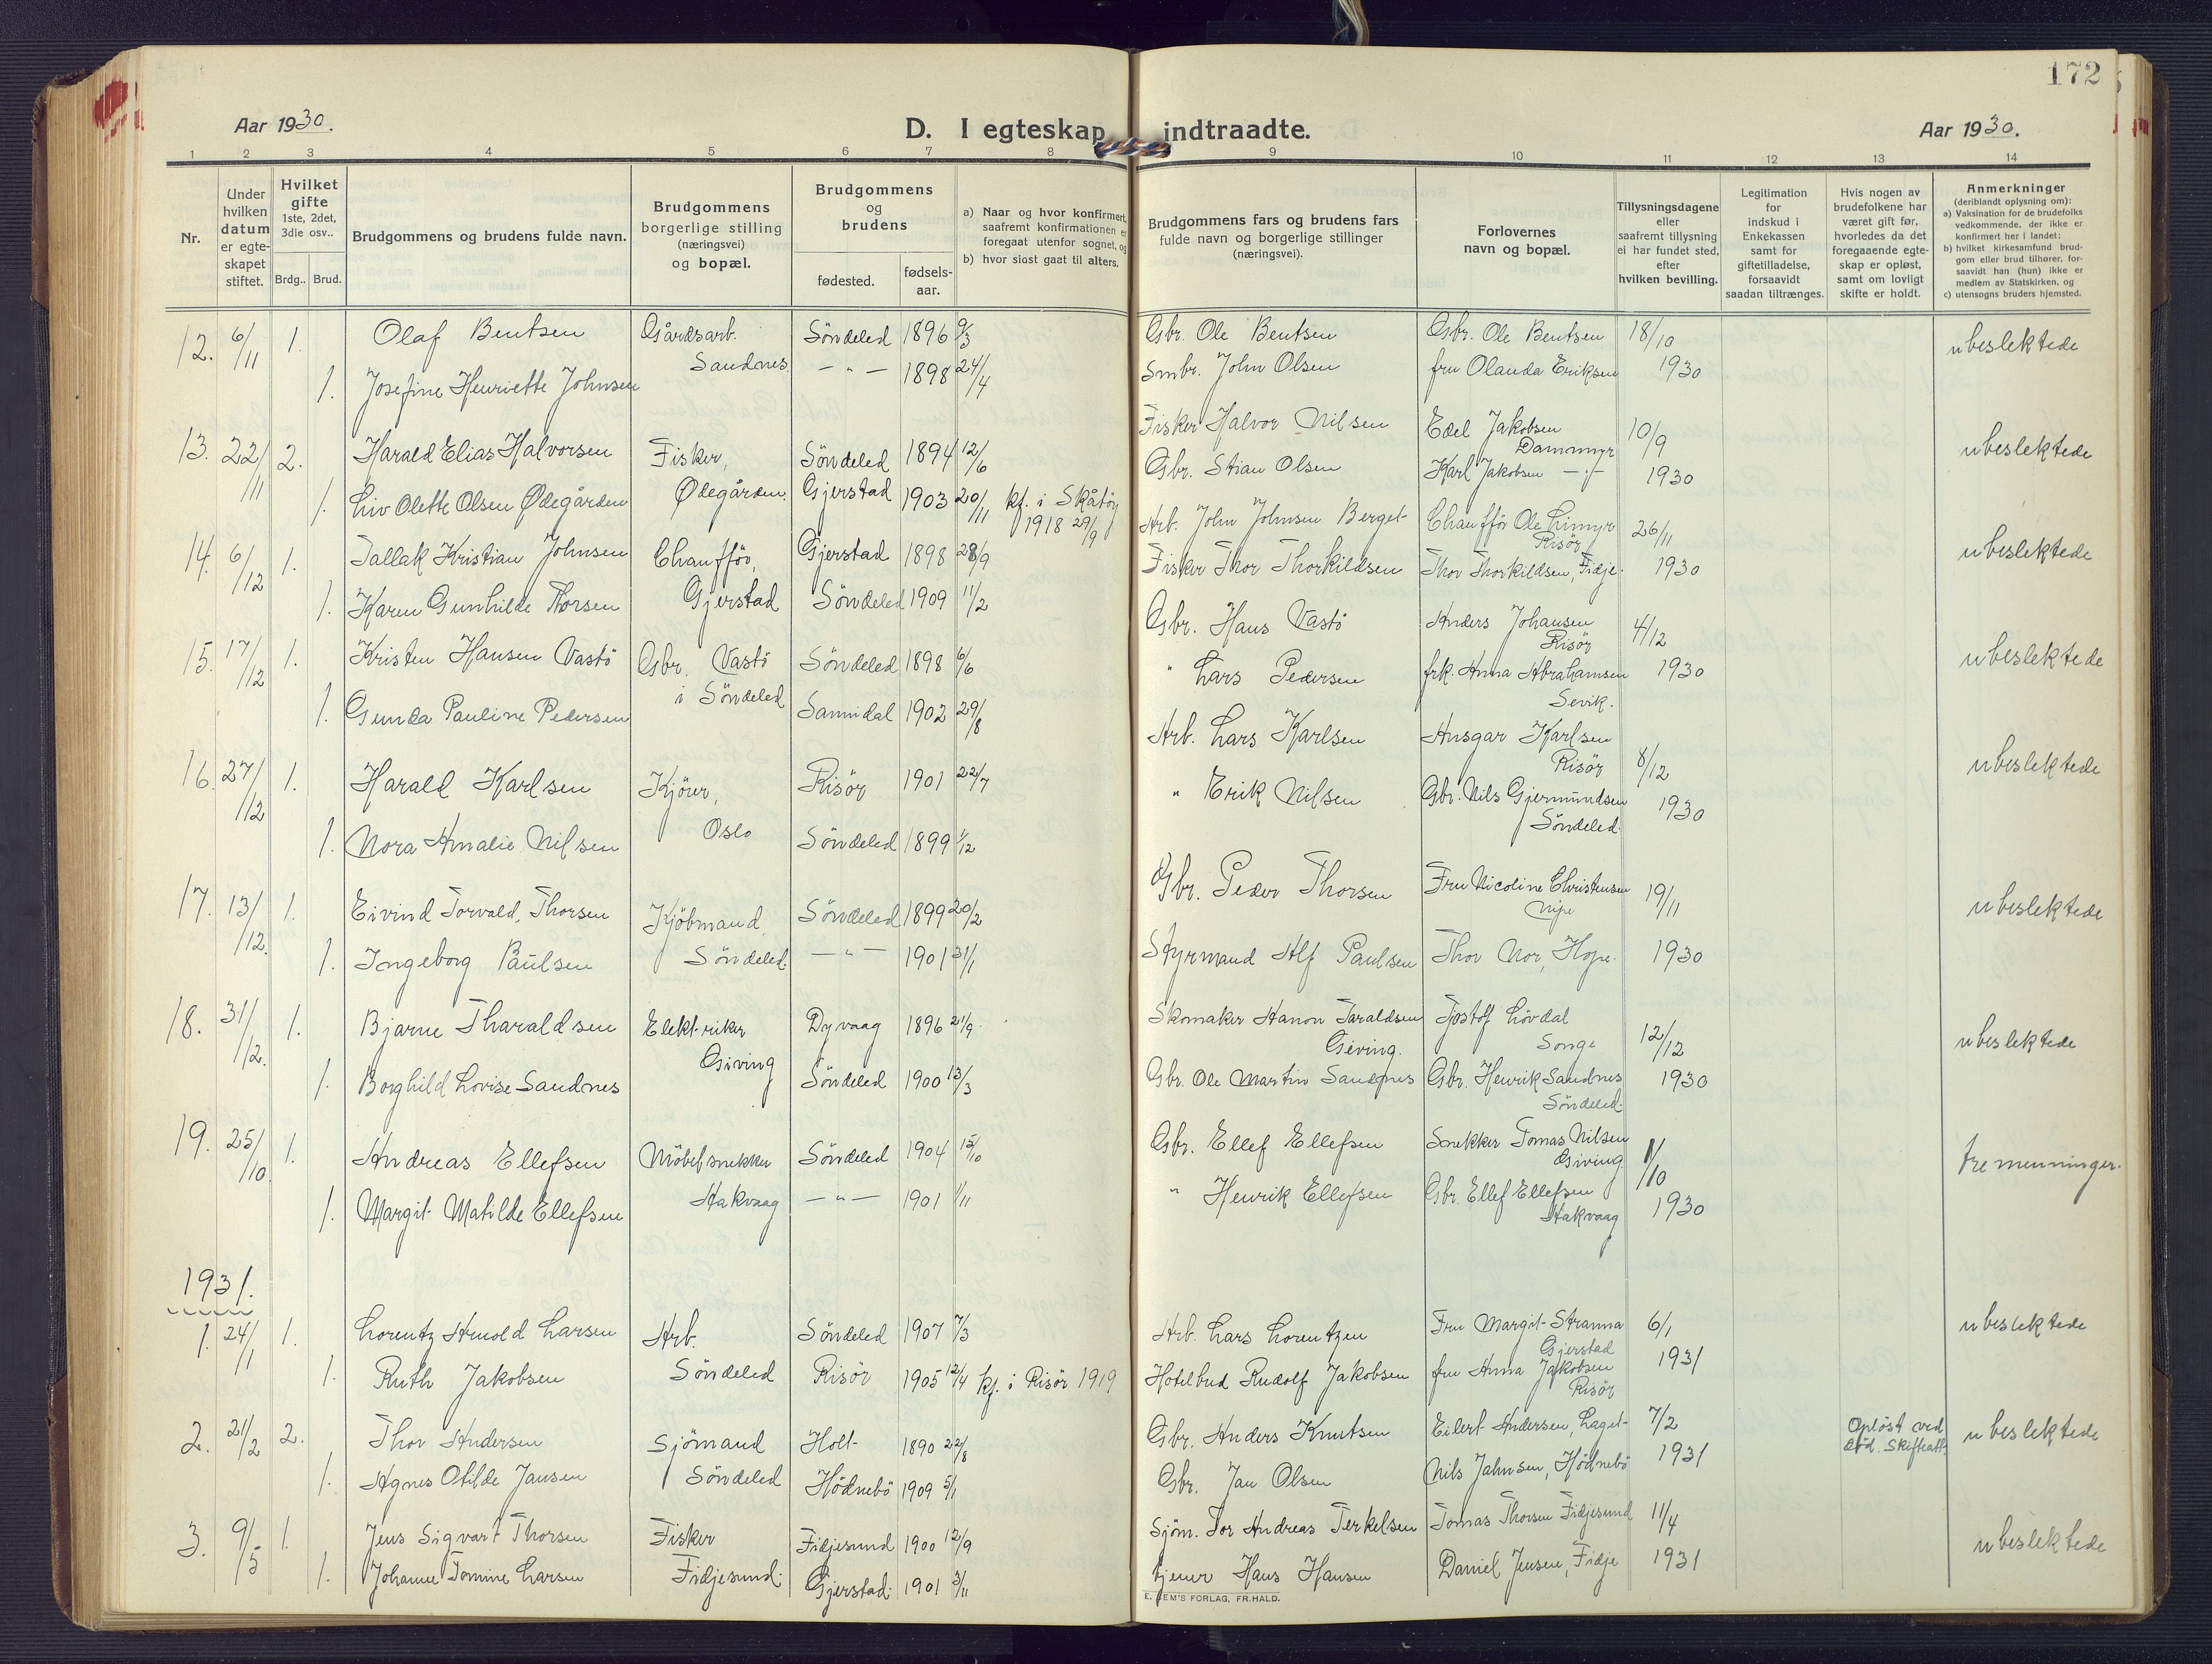 172
Aar 1930.
D. I egteskap indtraadte.
Aar 1930.
1 2 3 4 5 6 7 8 9 10 11 12 13 14
Nr.
Under hvilken datum er egte-skapet stiftet.
Hvilket gifte 1ste, 2det, 3die osv..
Brdg.. Brud.
Brudgommens og brudens fulde navn.
Brudgommens borgerlige stilling (næringsvei) og bopæl.
Brudgommens og brudens
fødested. fødsels-aar.
a) Naar og hvor konfirmert, saafremt konfirmationen er foregaat utenfor sognet, og
b) hvor sidst gaat til alters.
Brudgommens fars og brudens fars fulde navn og borgerlige stillinger (næringsvei).
Forlovernes navn og bopæl.
Tillysningsdagene eller saafremt tillysning ei har fundet sted, efter hvilken bevilling.
Legitimation for indskud i Enkekassen samt for giftetilladelse, forsaavidt saadan tiltrænges.
Hvis nogen av brudefolkene har været gift før, hvorledes da det foregaaende egte-skap er opløst, samt om lovligt skifte er holdt.
Anmerkninger (deriblandt oplysning om):
a) Vaksination for de brudefolks vedkommende, der ikke er konfirmert her i landet;
b) hvilket kirkesamfund brud-gom eller brud tilhører, for-saavidt han (hun) ikke er medlem av Statskirken, og
c) utensogns bruders hjemsted.
12. 6/11 1. Olaf Bentsen Gårdsarb. Söndeled 1896 9/3 Gbr. Ole Bentsen Gbr. Ole Bentsen 18/10 ubeslektede
1. Josefine Henriette Johnsen Sandnes. — " — 1898 24/4 Smbr. John Olsen fru Olanda Eriksen 1930
13. 22/11 2. Harald Elias Halvorsen Fisker, Söndeled 1894 12/6 Fisker Halvor Nilsen Edel Jakobsen Dammyr 10/9 ubeslektede
1. Liv Olette Olsen Ødegården Ødegården. Gjerstad 1903 20/11 kf. i Skåtöy 1918 29/9 Gbr. Stian Olsen Karl Jakobsen — " — 1930
14. 6/12 1. Tallak Kristian Johnsen Chaufför, Gjerstad 1898 28/9 Arb. John Johnsen Berget Chafför Ole Limyr Risör 26/11 ubeslektede
1. Karen Gunhilde Thorsen Gjerstad Söndeled 1909 11/2 Fisker Thor Thorkildsen Thor Thorkildsen, Fidje. 1930
15. 17/12 1. Kristen Hansen Vastö Gbr. Vastö Söndeled 1898 6/6 Gbr. Hans Vastö Anders Johansen Risör 4/12 ubeslektede
1. Gunda Pauline Pedersen i Söndeled Sannidal 1902 29/8 " Lars Pedersen frk. Anna Abrahamsen Sevik. 1930
16. 27/12 1. Harald Karlsen Kjörer, Risör 1901 22/7 Arb. Lars Karlsen Ansgar Karlsen Risör 8/12 ubeslektede
1. Nora Amalie Nilsen Oslo Söndeled 1899 1/12 " Erik Nilsen Gbr. Nils Gjermundsen Söndeled. 1930
17. 13/12. 1. Eivind Torvald, Thorsen Kjöbmand. Söndeled 1899 20/2 Gbr. Peder Thorsen Fru Nicoline Christensen Nipe 19/11 ubeslektede
1. Ingeborg Paulsen Söndeled. — " — 1901 31/1 Styrmand Alf Paulsen Thor Nor, Hope. 1930
18. 31/12. 1. Bjarne Tharaldsen Elektriker Dyvaag 1896 21/9 Skomaker Hanon Taraldsen Geving. Tjostof Lövdal Songe 12/12 ubeslektede
1. Borghild Lovise Sandnes Giving Söndeled 1900 13/3 Gbr. Ole Martin Sandnes Gbr. Henrik Sandnes Söndeled. 1930
19. 25/10 1. Andreas Ellefsen Möbelsnekker Söndeled 1904 15/10 Gbr. Ellef Ellefsen Snekker Tomas Nilsen Giving 1/10 tremenninger.
1. Margit Matilde Ellefsen Hakvaag — " — 1901 1/11 " Henrik Ellefsen Gbr. Ellef Ellefsen Hakvaag 1930
1931.
1. 24/1 1. Lorentz Arnold Larsen Arb. Söndeled 1907 7/3 Arb. Lars Lorentzen Fru Margit Stranna Gjerstad 6/1 ubeslektede
1. Ruth Jakobsen Söndeled Risör 1905 12/4 kf. i Risör 1919 Hotelbud Rudolf Jakobsen fru Anna Jakobsen Risör 1931
2. 21/2 2. Thor Andersen Sjömand Holt 1890 22/8 Gbr. Anders Knutsen Eilert Andersen, Laget 7/2 Opløst ved död. Skifteatt. ubeslektede
1. Agnes Otilde Jansen Söndeled Hödnebö 1909 5/1 Gbr. Jan Olsen Nils Jahnsen, Hödnebö 1931
3. 9/5 1. Jens Sigvart Thorsen Fisker Fidjesund 1900 12/9 Sjöm. Tor Andreas Terkelsen Tomas Thorsen Fidjesund 11/4 ubeslektede
1. Johanne Tomine Larsen Fidjesund. Gjerstad. 1901 3/11 tjener Hans Hansen Daniel Jensen, Fidje 1931
E. SEM'S FORLAG, FR.HALD.